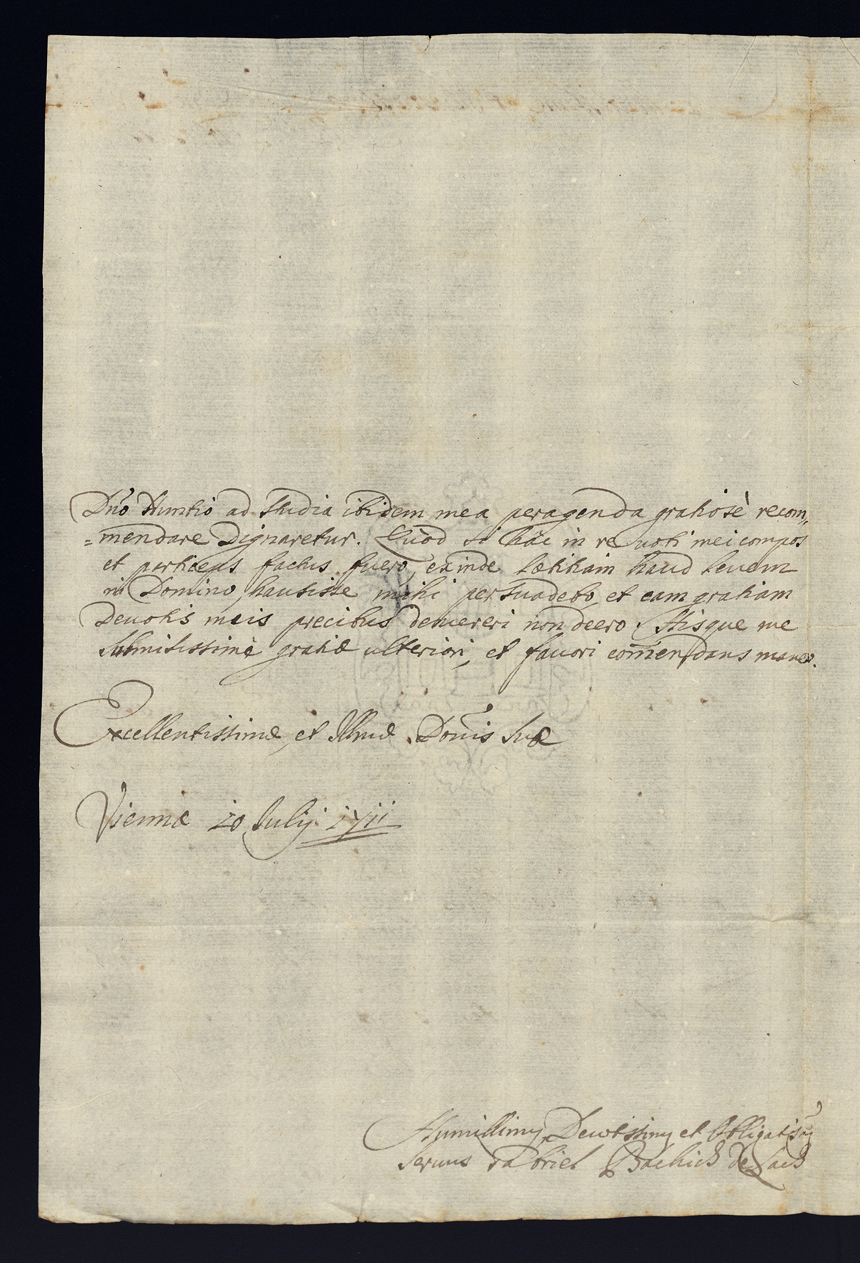 Dno Nuntio ad studia ibidem mea peragenda gratiosè recom„
=mendare dignaretur. Quod si hâc in re voti mei compos
et particeps factus fuero, exinde lætitiam haud levem
in Domino hausisse mihi persuadebo, et eam gratiam
Devotis meis precibus demereri non deero. Hisque me
submisissimè gratiæ ulteriori, et favori comendans maneo.
Excellentissimæ, et Illmæ Donis Suæ
Viennæ 20 July 1711
Humillimus, Devotissimus et Obligatissimus
Servus Gabriel de